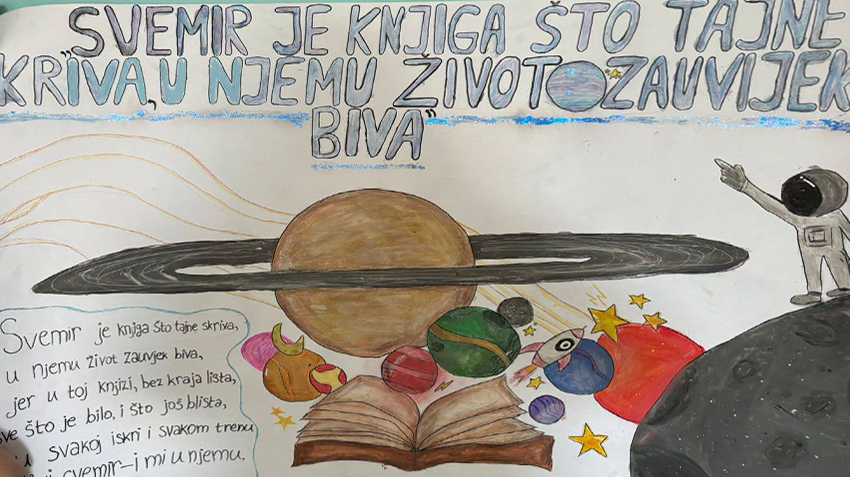 „SVEMIR JE KNJIGA ŠTO TAJNE
KRIVA, U NJEMU ŽIVOT ZAUVIJEK
BIVA"
Svemir je knjiga što tajne skriva,
u njemu život zauvjek biva,
jer u toj knjizi, bez kraja lista,
sve što je bilo, i što još blista,
u svakoj iskri i svakom trenu
svemir – i mi u njemu.